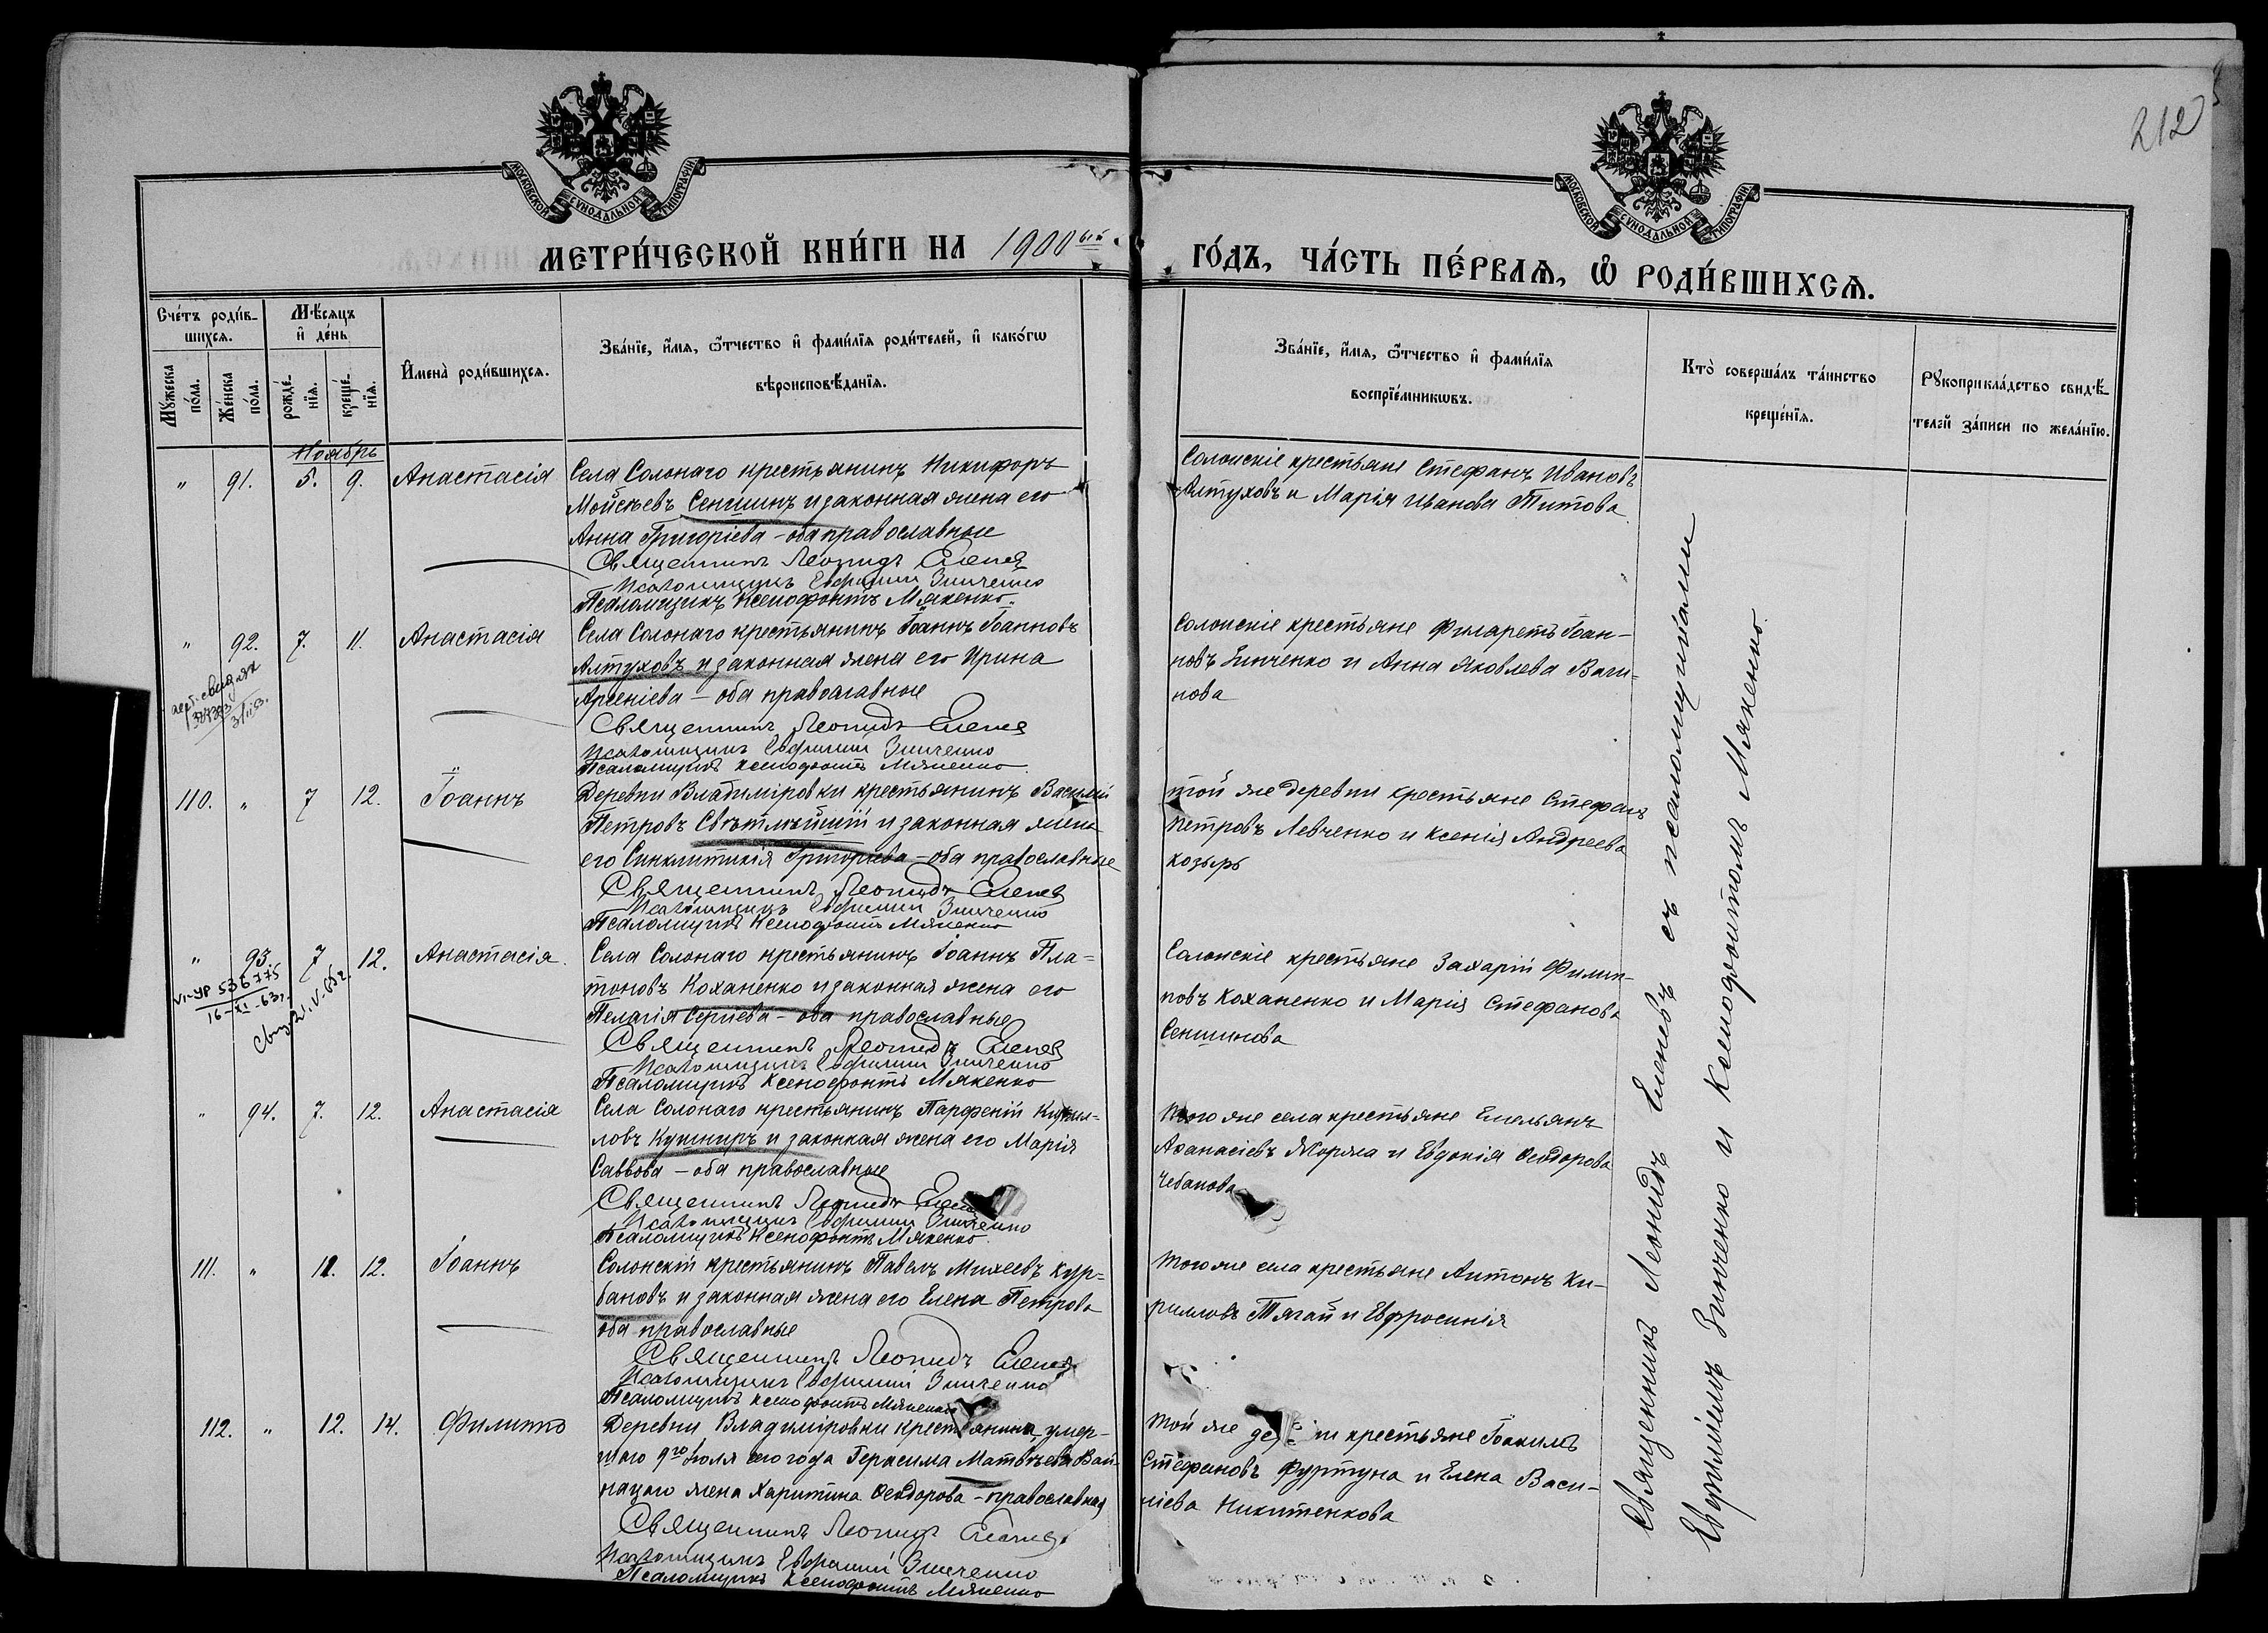 212
МОСКОВСКОЙ СѴНОДАЛЬНОЙ ТИПОГРАФІИ
МОСКОВСКОЙ СѴНОДАЛЬНОЙ ТИПОГРАФІИ
МЕТРИ́ЧЕСКОЙ КНИ́ГИ НА 1900ый
ГО́ДЪ, ЧА́СТЬ ПЕ́РВАѦ, Ѽ РОДИ́ВШИХСѦ.
Сче́тъ роди́в-
шихсѧ.
Мѣ́сѧцъ
и҆ де́нь
Мꙋ́жеска
по́ла.
Же́нска
по́ла.
рожде́-
нїѧ.
креще́-
нїѧ.
И҆мена̀ роди́вшихсѧ.
Зва́нїе, и҆́мѧ, ѻ҆́тчество и҆ фами́лїѧ роди́телей, и҆ како́гѡ
вѣроисповѣ́данїѧ.
Зва́нїе, и҆́мѧ, ѻ҆́тчество и҆ фами́лїѧ
воспрїе́мникѡвъ.
Кто̀ соверша́лъ та́инство
креще́нїѧ.
Рꙋкоприкла́дство свидѣ́-
телей за́писи по жела́нїю.
Ноябрь
" 91. 5. 9. Анастасія
Села Солонаго крестьянинъ Никифоръ
Мойсѣевъ Сеншинъ и законная жена его
Анна Григоріева – оба православные
Священникъ Леонидъ Еленев
Псаломщикъ Евфимій Зинченко
Псаломщикъ Ксенофонтъ Мякенко.
Солонскіе крестьяне Стефанъ Ивановъ
Алтуховъ и Марія Иванова Титова
" 92. 7. 11. Анастасія
31/
Села Солонаго крестьянинъ Іоаннъ Іоанновъ
Алтуховъ и законная жена его Ирина
Арсеніева – оба православные
Священникъ Леонидъ Еленев
Псаломщикъ Евфимій Зинченко
Псаломщикъ Ксенофонтъ Мякенко.
Солонскіе крестьяне Филаретъ Іоан-
новъ Зинченко и Анна Яковлева Ваги-
нова
110. " 7 12. Іоаннъ
Деревни Владиміровки крестьянинъ Василій
Петровъ Свѣтлѣйшій и законная жена
его Синклитикія Григорьева – оба православные
Священникъ Леонидъ Еленев
Псаломщикъ Евфимій Зинченко
Псаломщикъ Ксенофонтъ Мякенко
той же деревни крестьяне Стефанъ
Петровъ Левченко и Ксенія Андреева
Козырь
" 93. 7 12. Анастасія.
VI-УР 536775
16-XI-63г.
Села Солонаго крестьянинъ Іоаннъ Пла=
тоновъ Коханенко и законная жена его
Пелагія Сергіева – оба православные
Священникъ Леонидъ Еленев
Псаломщикъ Евфимій Зинченко
Псаломщикъ Ксенофонтъ Мякенко
Солонскіе крестьяне Захарій Филип-
повъ Коханенко и Марія Стефанова
Сеншинова
" 94. 7. 12. Анастасія
Села Солонаго крестьянинъ Парфеній Кирил=
ловъ Кушниръ и законная жена его Марія
Саввова – оба православные
Священникъ Леонидъ
Псаломщикъ Евфимій Зинченко
Псаломщикъ Ксенофонтъ Мякенко.
Того же села крестьяне Емельянъ
Аѳанасіевъ Жоржа и Евдокія Ѳеодорова
Чебанова
111. " 12. Іоаннъ
Солонскій крестьянинъ Павелъ Михеевъ Кур=
бановъ и законная жена его Елена Петрова
оба православные
Священникъ Леонидъ Еленев
Псаломщикъ Евфимій Зинченко
Псаломщикъ Ксенофонтъ Мякенко
Того же села крестьяне Антонъ Ки-
рилловъ Тягай и Евфросинія
112. " 12. 14. Филиппъ
Деревни Владиміровки крестьянина умер-
шаго 9го Іюля сего года Герасима Матвѣева Вой-
нацаго жена Харитина Ѳеодорова – православная
Священникъ Леонидъ Еленев
Псаломщикъ Евфимій Зинченко
Псаломщикъ Ксенофонтъ Мякенко
той же крестьяне Іоакимъ
Стефановъ Фуртуна и Елена Васи-
ліева Никитенкова
Священникъ Леонидъ Еленевъ съ псаломщиками
Евфиміемъ Зинченко и Ксенофонтомъ Мякенко.